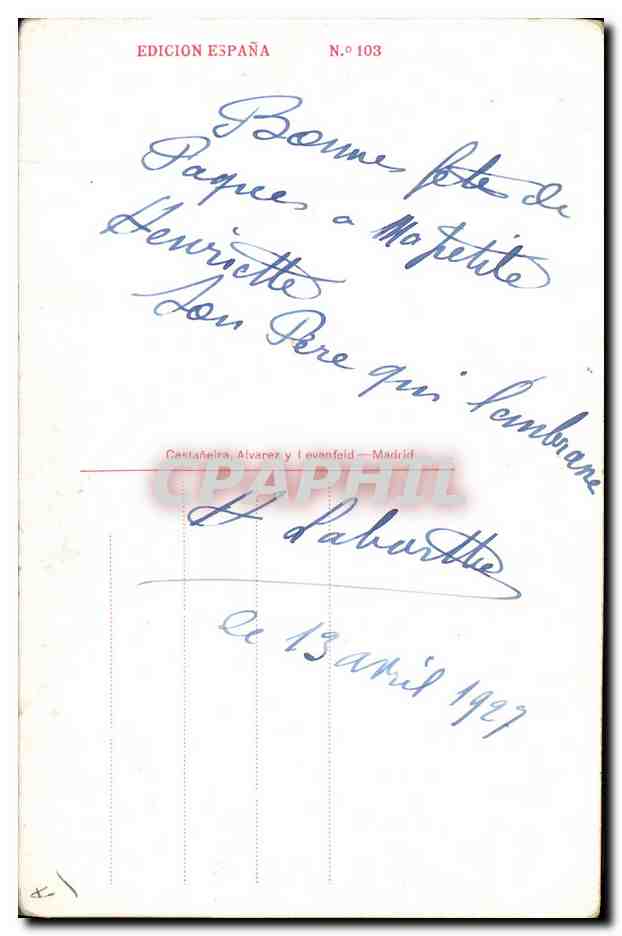 EDICION ESPAÑA N.º 103
Bonnes fêtes de
Paques a Ma petite
Henriette
Son Père qui l'embrasse
Castañeira, Alvarez y Levenfeld — Madrid
CPAPHIL
H Labarthe
le 13 avril 1927